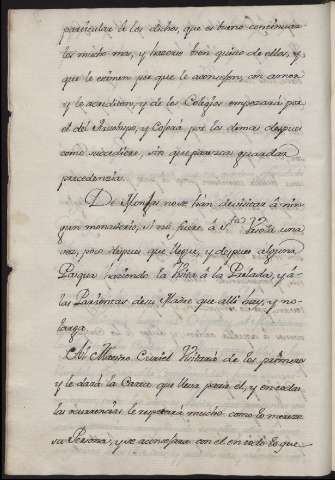 particular de los dichos, que es bueno continuar
los mucho mas, y hacerse bien quisto de ellos, y
que le estimen por que le aconsejen, con amor
y le acrediten, y de los Colegios empezará por
el del Arzobispo, y por los demas despues
como sucediere, sin que parezca guardar
precedencia.
De Monjas no se han de visitar á nin
gun monasterio, si no fuere á S.ta una
vez, poco despues que llegue, y despues alguna
Pasqua haciendo la Visita á la Prelada, y á
las Parientas de su Madre que alli ay, y no
larga.
Al Maestro Curiel Visitará de los primeros
y le dará la Carta que lleva para el, y en todas
las ocurrencias le respetará mucho como lo merece
su Persona, y se aconsejara con el en todo lo que